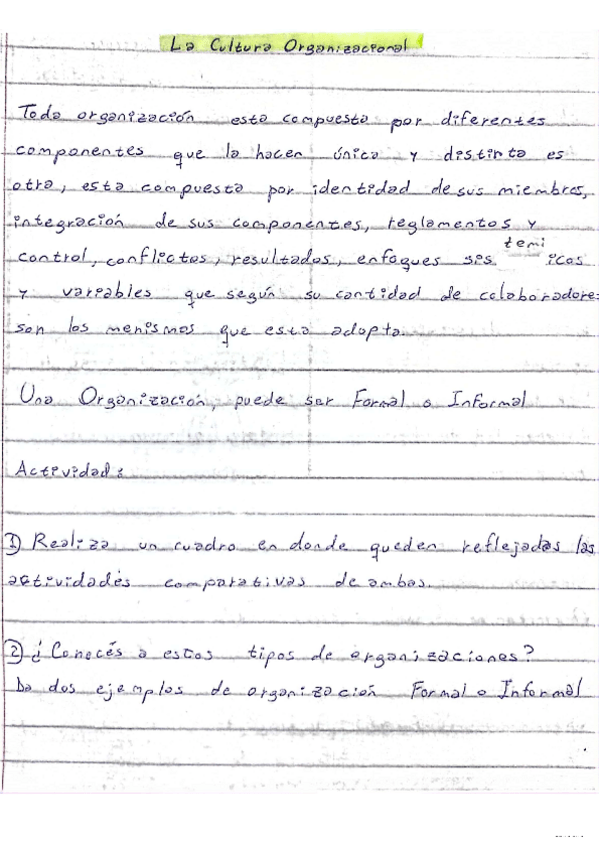 La Cultura Organizacional
Toda organización esta compuesta por diferentes
componentes que la hacen única y distinta es
otra, esta compuesta por identidad de sus miembres,
integración de sus componentes, reglamentos y
control, conflictos, resultados, enfoques sistemiicos
y variables que según su cantidad de colaboradores
son los menismos que esta adopta.
Una Organización, puede ser Formal o Informal
Actividad:
1) Realiza un cuadro en donde queden reflejadas las
actividades comparativas de ambas.
2) ¿Conocés a estos tipos de organizaciones?
Da dos ejemplos de organización Formal o Informal